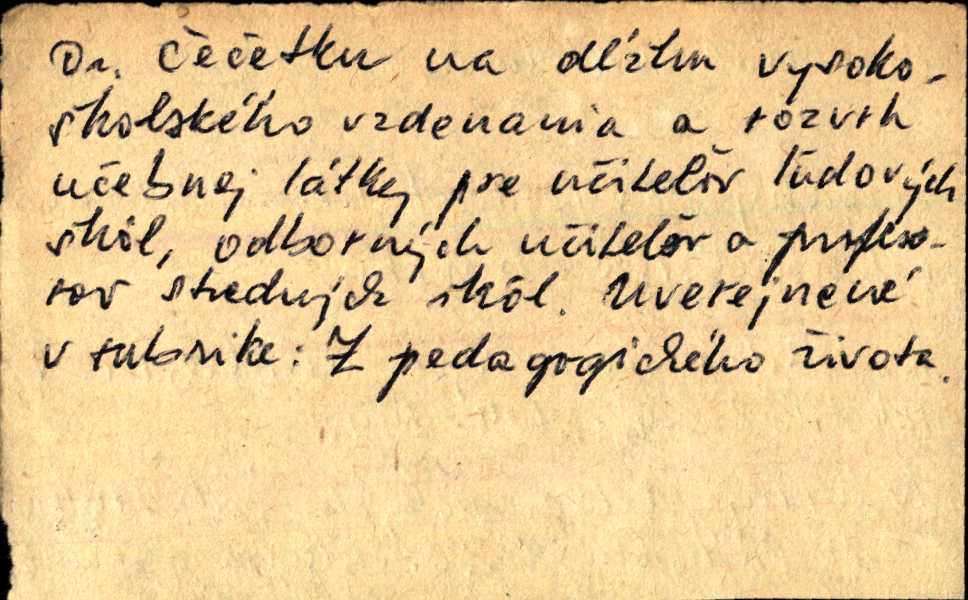 Dr. Čečetku na dĺžku vysoko-
školského vzdenania a rozvrh
učebnej látky pre učiteľov ľudových
škôl, odborných učiteľov a profeso-
rov stredných škôl. Uverejnené
v rubrike: Z pedagogického života.